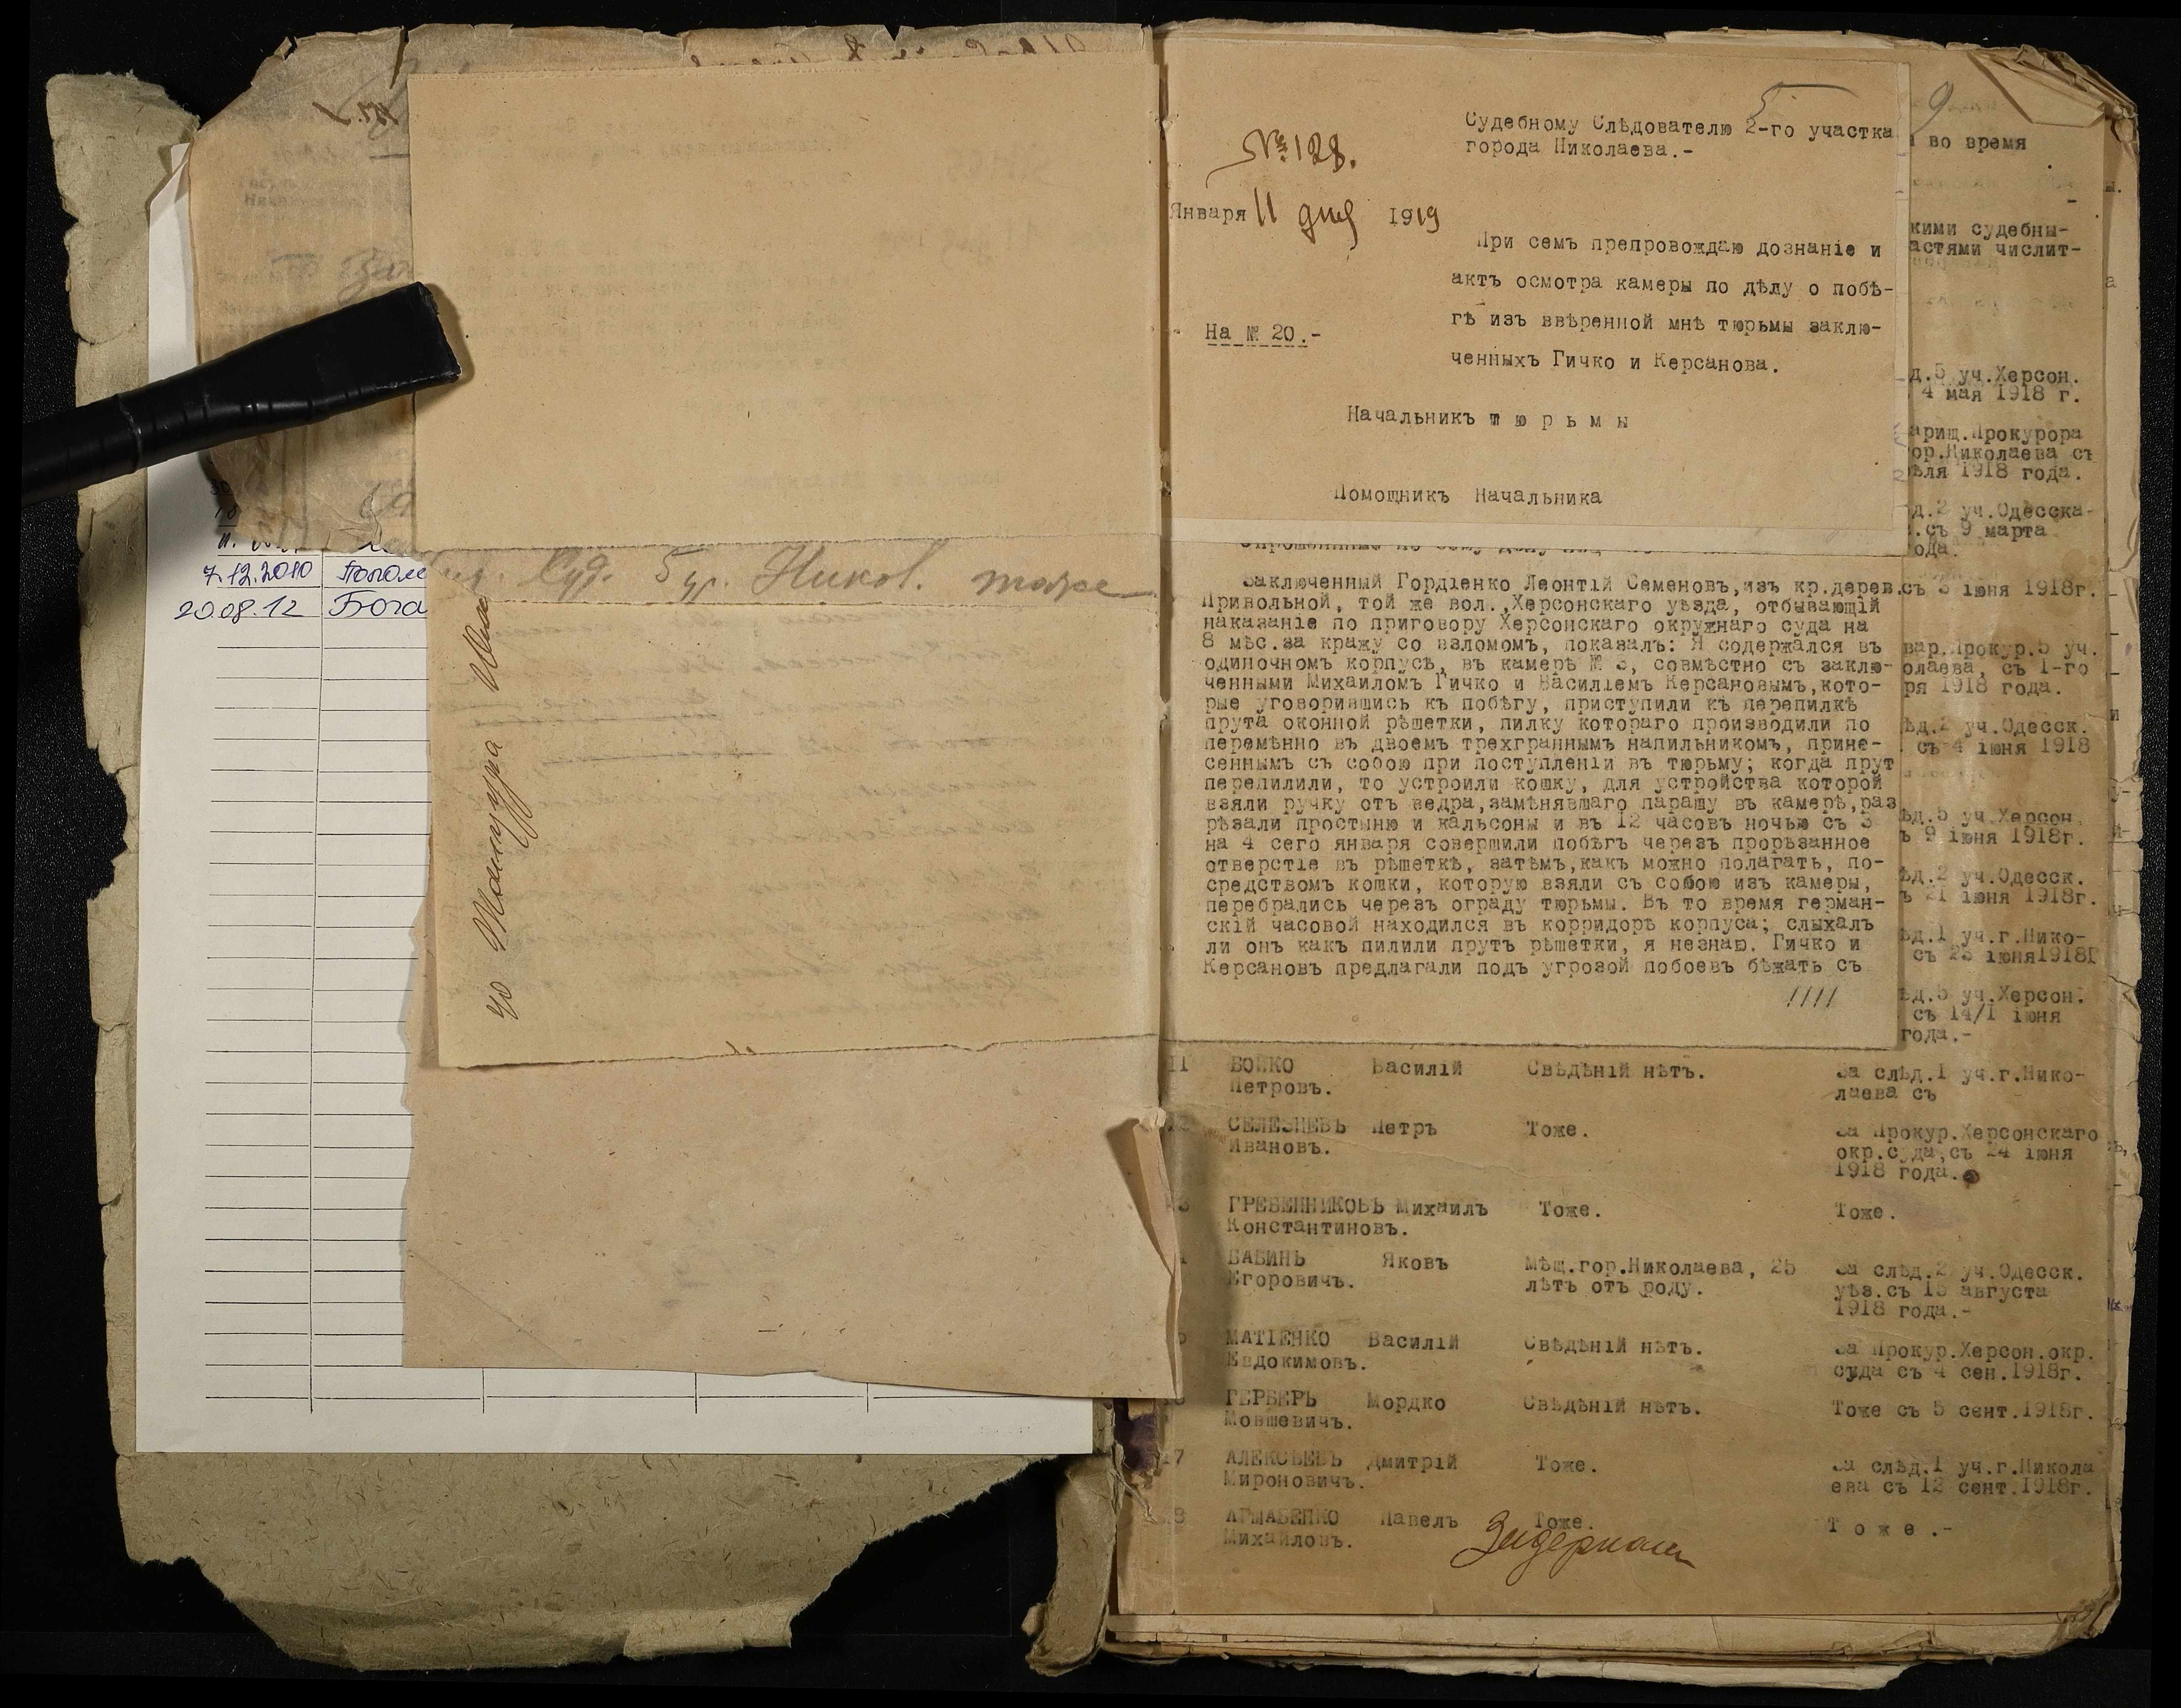 7.12.2010
20.08.12
Суд. 5 уч. Никол. тоже
5
9
Судебному Слѣдователю 2-го участка
города Николаева.-
№ 128.
Января 11 дня 1919
При семъ препровождаю дознаніе и
актъ осмотра камеры по дѣлу о побѣ-
гѣ изъ ввѣренной мнѣ тюрьмы заклю-
ченныхъ Гичко и Керсанова.
На № 20.-
Начальникъ т ю р ь м ы
Помощникъ Начальника
Заключенный Гордіенко Леонтій Семеновъ,изъ кр.дерев.
Привольной, той же вол.,Херсонскаго уѣзда, отбывающій
наказаніе по приговору Херсонскаго окружнаго суда на
8 мѣс.за кражу со взломомъ, показалъ: Я содержался въ
одиночномъ корпусѣ, въ камерѣ № 3, совмѣстно съ заклю-
ченными Михаиломъ Гичко и Василіемъ Керсановымъ,кото-
рые уговорившись къ побѣгу, приступили къ перепилкѣ
прута оконной рѣшетки, пилку котораго производили по
перемѣнно въ двоемъ трехграннымъ напильникомъ, прине-
сеннымъ съ собою при поступленіи въ тюрьму; когда прут
перепилили, то устроили кошку, для устройства которой
взяли ручку отъ ведра,замѣнявшаго парашу въ камерѣ,раз
рѣзали простыню и кальсоны и въ 12 часовъ ночью съ 3
на 4 сего января совершили побѣгъ черезъ прорѣзанное
отверстіе въ рѣшеткѣ, затѣмъ,какъ можно полагать, по-
средствомъ кошки, которую взяли съ собою изъ камеры,
перебрались черезъ ограду тюрьмы. Въ то время герман-
скій часовой находился въ корридорѣ корпуса; слыхалъ
ли онъ какъ пилили прутъ рѣшетки, я незнаю. Гичко и
Керсановъ предлагали подъ угрозой побоевъ бѣжать съ
////
во время
кими судебны-
астями числит-
д.5 уч.Херсон.
4 мая 1918 г.
арищ.Прокурора
ор.Николаева съ
ѣля 1918 года.
д.2 уч.Одесска-
.съ 9 марта
ода.
съ 3 іюня 1918г.
вар.Прокур.5 уч.
олаева, съ 1-го
ря 1918 года.
ѣд.2 уч.Одесск.
съ 4 іюня 1918
ѣд.5 уч.Херсон.
ъ 9 іюня 1918г.
ѣд.2 уч.Одесск.
ъ 21 іюня 1918г.
ѣд.1 уч.г.Нико-
съ 23 іюня1918г
ѣд.5 уч.Херсон.
съ 14/1 іюня
года.-
11 БОЙКО Василій Свѣдѣній нѣтъ. За слѣд.1 уч.г.Нико-
Петровъ. лаева съ
СЕЛЕЗНЕВЪ Петръ Тоже. За Прокур.Херсонскаго
Ивановъ. окр.суда,съ 24 іюня
1918 года.
3 ГРЕБЕННИКОВЪ Михаилъ Тоже. Тоже.
Константиновъ.
БАБИНЪ Яковъ Мѣщ.гор.Николаева, 25 За слѣд.2 уч.Одесск.
Егоровичъ. лѣтъ отъ роду. уѣз.съ 15 августа
1918 года.-
МАТІЕНКО Василій Свѣдѣній нѣтъ. За Прокур.Херсон.окр.
Евдокимовъ. суда съ 4 сен.1918г.
ГЕРБЕРЪ Мордко Свѣдѣній нѣтъ. Тоже съ 5 сент.1918г.
Мовшевичъ.
17 АЛЕКСѢЕВЪ Дмитрій Тоже. За слѣд.1 уч.г.Никола
Мироновичъ. ева съ 12 сент.1918г.
8 Павелъ Тоже. Т о ж е .-
Михайловъ.